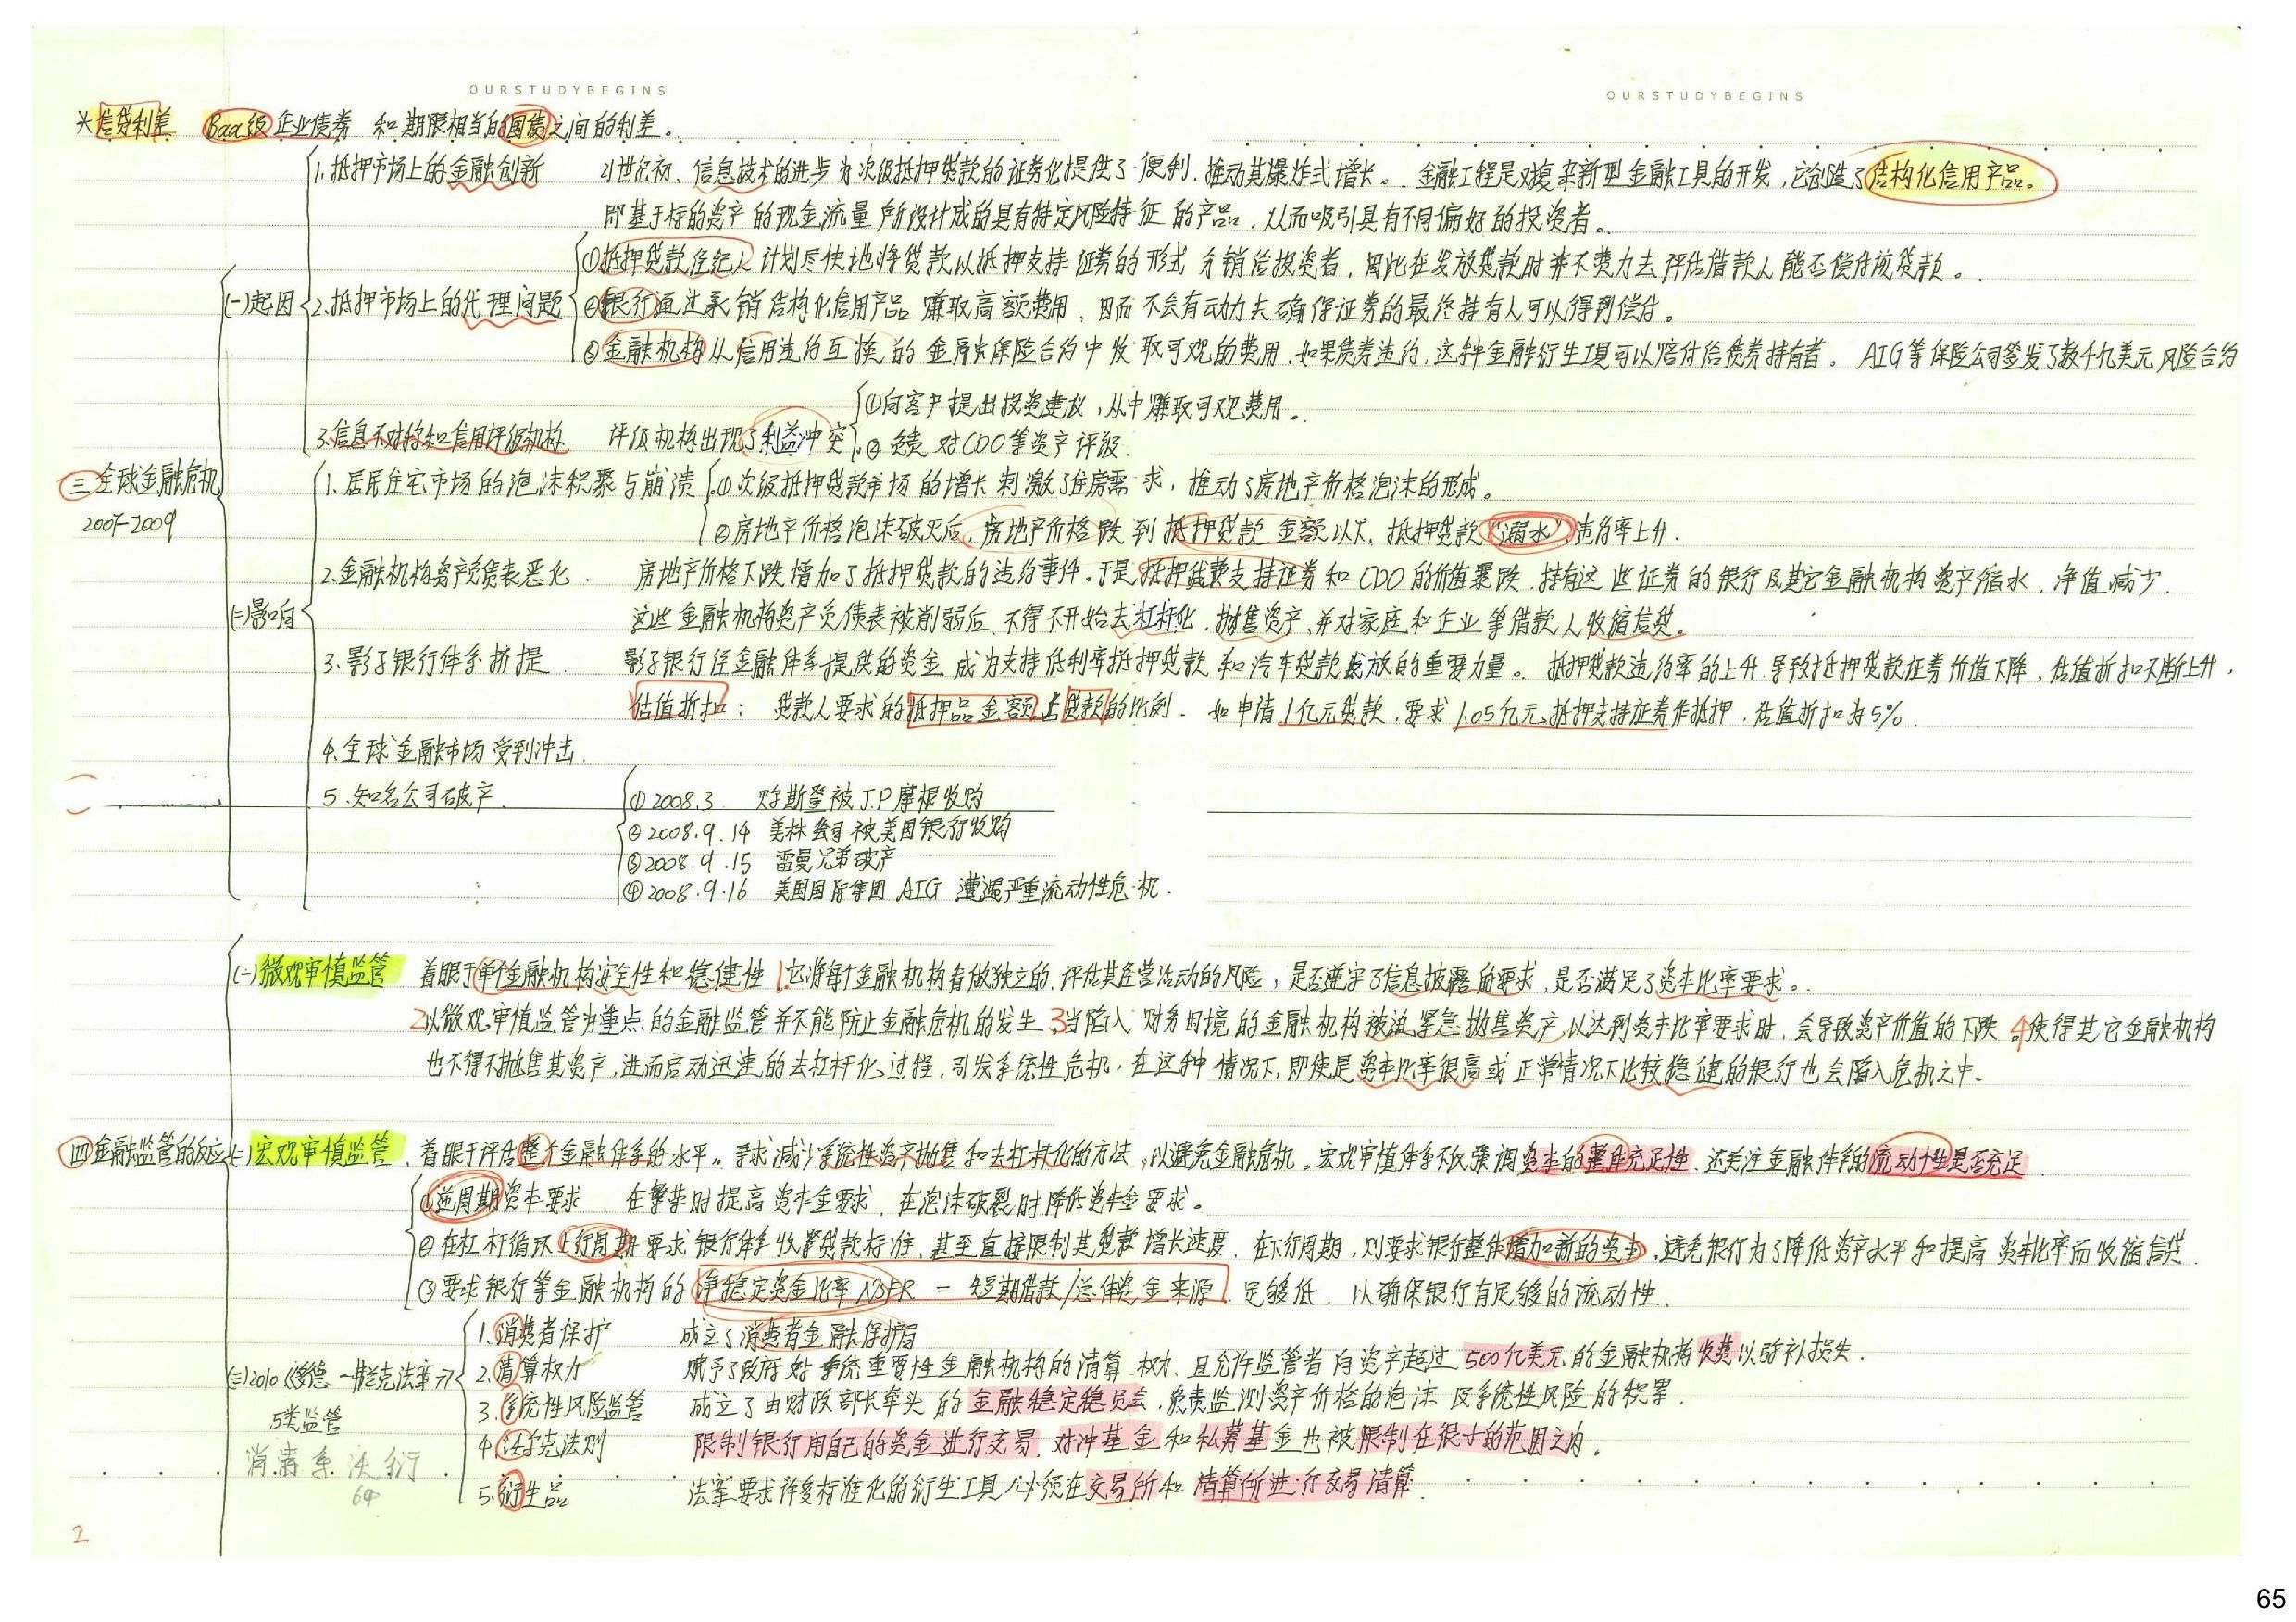 OURSTUDYBEGINS
OURSTUDYBEGINS
*信贷利差 Baa级企业债券 和期限相当的国债之间的利差。
1.抵押市场上的金融创新 21世纪初、信息技术的进步为次级抵押贷款的证券化提供了便利,推动其爆炸式增长。金融工程是对复杂新型金融工具的开发,它创造了结构化信用产品。
即基于标的资产的现金流量所设计成的具有特定风险特征的产品,从而吸引具有不同偏好的投资者。
①抵押贷款经纪人计划尽快地将贷款以抵押支持证券的形式分销给投资者,因此在发放贷款时并不费力去评估借款人能否偿付该贷款。
(一)起因 2.抵押市场上的代理问题 ②银行通过承销结构化信用产品赚取高额费用、因而不会有动力去确保证券的最终持有人可以得到偿付。
③金融机构从信用违约互换的金融保险合约中收取可观的费用.如果债券违约,这种金融衍生工具可以赔付给债券持有者。AIG等保险公司签发了数千亿美元风险合约
①向客户提出投资建议,从中赚取可观费用。
3.信息不对称和信用评级机构 评级机构出现了利益冲突 ②负责对CDO等资产评级.
三 全球金融危机 1.居民住宅市场的泡沫积聚与崩溃 ①次级抵押贷款市场的增长刺激了住房需求,推动了房地产价格泡沫的形成。
2007-2009 ②房地产价格泡沫破灭后,房地产价格跌到抵押贷款金额以下,抵押贷款“溺水”,违约率上升.
2.金融机构资产负债表恶化. 房地产价格下跌增加了抵押贷款的违约事件.于是抵押贷款支持证券和CDO的价值暴跌.持有这些证券的银行及其它金融机构资产缩水.净值减少.
(二)影响 这些金融机构资产负债表被削弱后,不得不开始去杠杆化,抛售资产、并对家庭和企业等借款人收缩信贷。
3.影子银行体系挤提. 影子银行经金融体系提供的资金成为支持低利率抵押贷款和汽车贷款发放的重要力量。抵押贷款违约率的上升导致抵押贷款证券价值下降,估值折扣不断上升,
估值折扣: 贷款人要求的抵押品金额与贷款的比例. 如申请1亿元贷款,要求1.05亿元抵押支持证券作抵押.估值折扣为5%.
4.全球金融市场受到冲击.
5.知名公司破产. ①2008.3 贝尔斯登被J.P摩根收购
②2008.9.14 美林公司被美国银行收购
③2008.9.15 雷曼兄弟破产
④2008.9.16 美国国际集团AIG遭遇严重流动性危机.
(一)微观审慎监管 着眼于单个金融机构安全性和稳健性 1.它将每个金融机构看做独立的,评估其经营活动的风险,是否遵守了信息披露的要求,是否满足了资本比率要求。
2以微观审慎监管为重点的金融监管并不能防止金融危机的发生 3当陷入财务困境的金融机构被迫紧急抛售资产以达到资本比率要求时,会导致资产价值的下跌 4使得其它金融机构
也不得不抛售其资产,进而启动迅速的去杠杆化过程,引发系统性危机.在这种情况下,即使是资本比率很高或正常情况下比较稳健的银行也会陷入危机之中.
四 金融监管的反应 (二)宏观审慎监管、着眼于评估整个金融体系的水平。寻求减少系统性资产抛售和去杠杆化的方法,以避免金融危机。宏观审慎体系不仅强调资本的整体充足性.还关注金融体系的流动性是否充足
①逆周期资本要求. 在繁荣时提高资本金要求,在泡沫破裂时降低资本金要求。
②在杠杆循环上行周期要求银行体系收紧贷款标准,甚至直接限制其贷款增长速度.在下行周期,则要求银行整体增加新的资本,避免银行为了降低资产水平和提高资本比率而收缩信贷.
③要求银行等金融机构的净稳定资金比率NSFR = 短期借款/总体资金来源 足够低.以确保银行有足够的流动性.
1.消费者保护 成立了消费者金融保护局
(三)2010《多德-弗兰克法案》 2.清算权力 赋予了政府对系统重要性金融机构的清算权力,且允许监管者向资产超过500亿美元的金融机构收费以弥补损失.
5类监管 3.系统性风险监管 成立了由财政部长牵头的金融稳定稳员会,负责监测资产价格的泡沫及系统性风险的积累.
4.沃尔克法则 限制银行用自己的资金进行交易.对冲基金和私募基金也被限制在很小的范围之内.
消 清 系 沃 衍
5.衍生品 法案要求许多标准化的衍生工具必须在交易所和清算所进行交易清算.
64
2
65